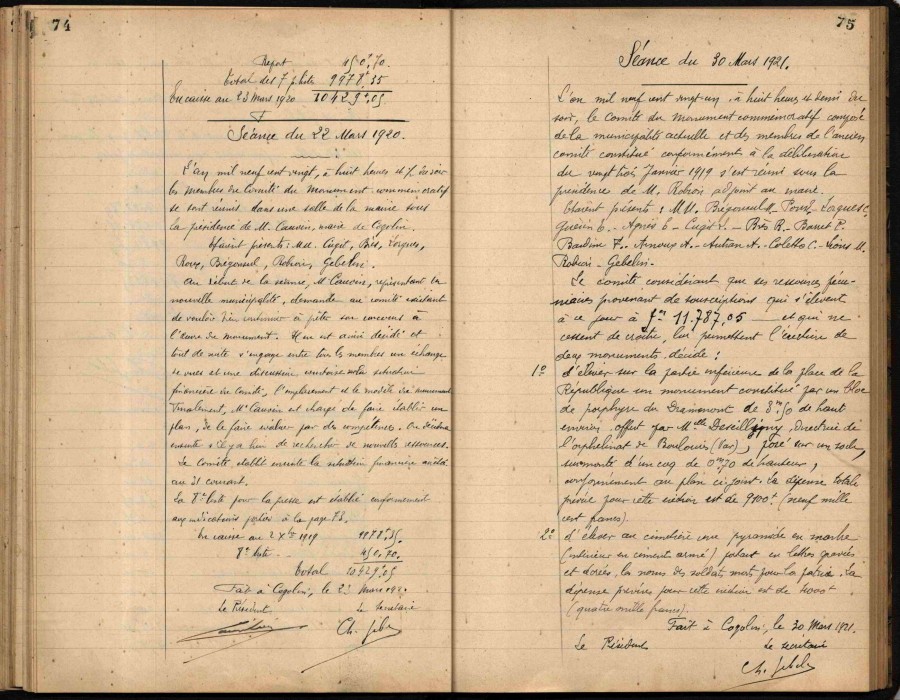 74
Report 450f,70.
Total des 7 p. liste 9978f,35
En caisse au 23 Mars 1920 10429f,05
Séance du 22 Mars 1920.
L'an mil neuf cent vingt, à huit heures et ½ du soir
les membres du Comité du Monument commémoratif
se sont réunis dans une salle de la mairie sous
la présidence de M. Cauvin, maire de Cogolin.
Etaient présents: MM. Cugit, Brès, Jorgues,
Roux, Brégonsul, Robion, Gebelin.
Au début de la séance, M. Cauvin, représentant la
nouvelle municipalité, demande au comité existant
de vouloir bien continuer à prêter son concours à
l'œuvre du monument. Il en est ainsi décidé et
tout de suite s'engage entre tous les membres un échange
de vues et une discussion sur la situation
financière du comité, l'emplacement et le modèle du monument
Finalement, Mr Cauvin est chargé de faire établir un
plan, de le faire évaluer par des compétences. On décidera
ensuite s'il y a lieu de rechercher de nouvelles ressources.
Le Comité établit ensuite la situation financière arrêtée
au 31 courant.
La 8e liste pour la presse est établie conformément
aux indications portées à la page 73.
En caisse au 2 Xbre 1919 9978f,35.
8e liste 450,70.
Total 10429f,05
Fait à Cogolin, le 22 Mars 1920.
Le Président Le Secrétaire
Ch. Gebelin
75
Séance du 30 Mars 1921.
L'an mil neuf cent vingt-un, à huit heures et demi du
soir, le Comité du monument commémoratif composé
de la municipalité actuelle et des membres de l'ancien
comité constitué conformément à la délibération
du vingt trois Janvier 1919 s'est réuni sous la
présidence de M. Robion adjoint au maire.
Etaient présents: MM. Brégonsul M., Jorgues C.
Guérin E. - Agnès E - Cugit L. - Brès R - Bonnet P.
Bardine F. - Arnoux A. - Autran A. - Coletto C. - M.
Robion - Gebelin -
Le comité considérant que ses ressources pécu-
niaires provenant de souscriptions qui s'élèvent
à ce jour à frs 11.787,05 et qui ne
cessent de croître, lui permettent l'érection de
deux monuments décide:
1° d'élever sur la partie inférieure de la place de la
République un monument constitué par un bloc
de porphyre du Dramont de 3m,50 de haut
environ offert par Melle Deseilligny, Directrice de
l'orphelinat de Boulouris (Var), posé sur un socle,
surmonté d'un coq de 0m70 de hauteur,
conformément au plan ci-joint. La dépense totale
prévue pour cette érection est de 9100f (neuf mille
cent francs).
2° d'élever au cimetière une pyramide en marbre
(intérieur en ciment armé) portant en lettres gravées
et dorées, les noms des soldats morts pour la patrie. La
dépense prévue pour cette érection est de 4000f
(quatre mille francs).
Fait à Cogolin, le 30 Mars 1921.
Le Président Le secrétaire
Ch. Gebelin